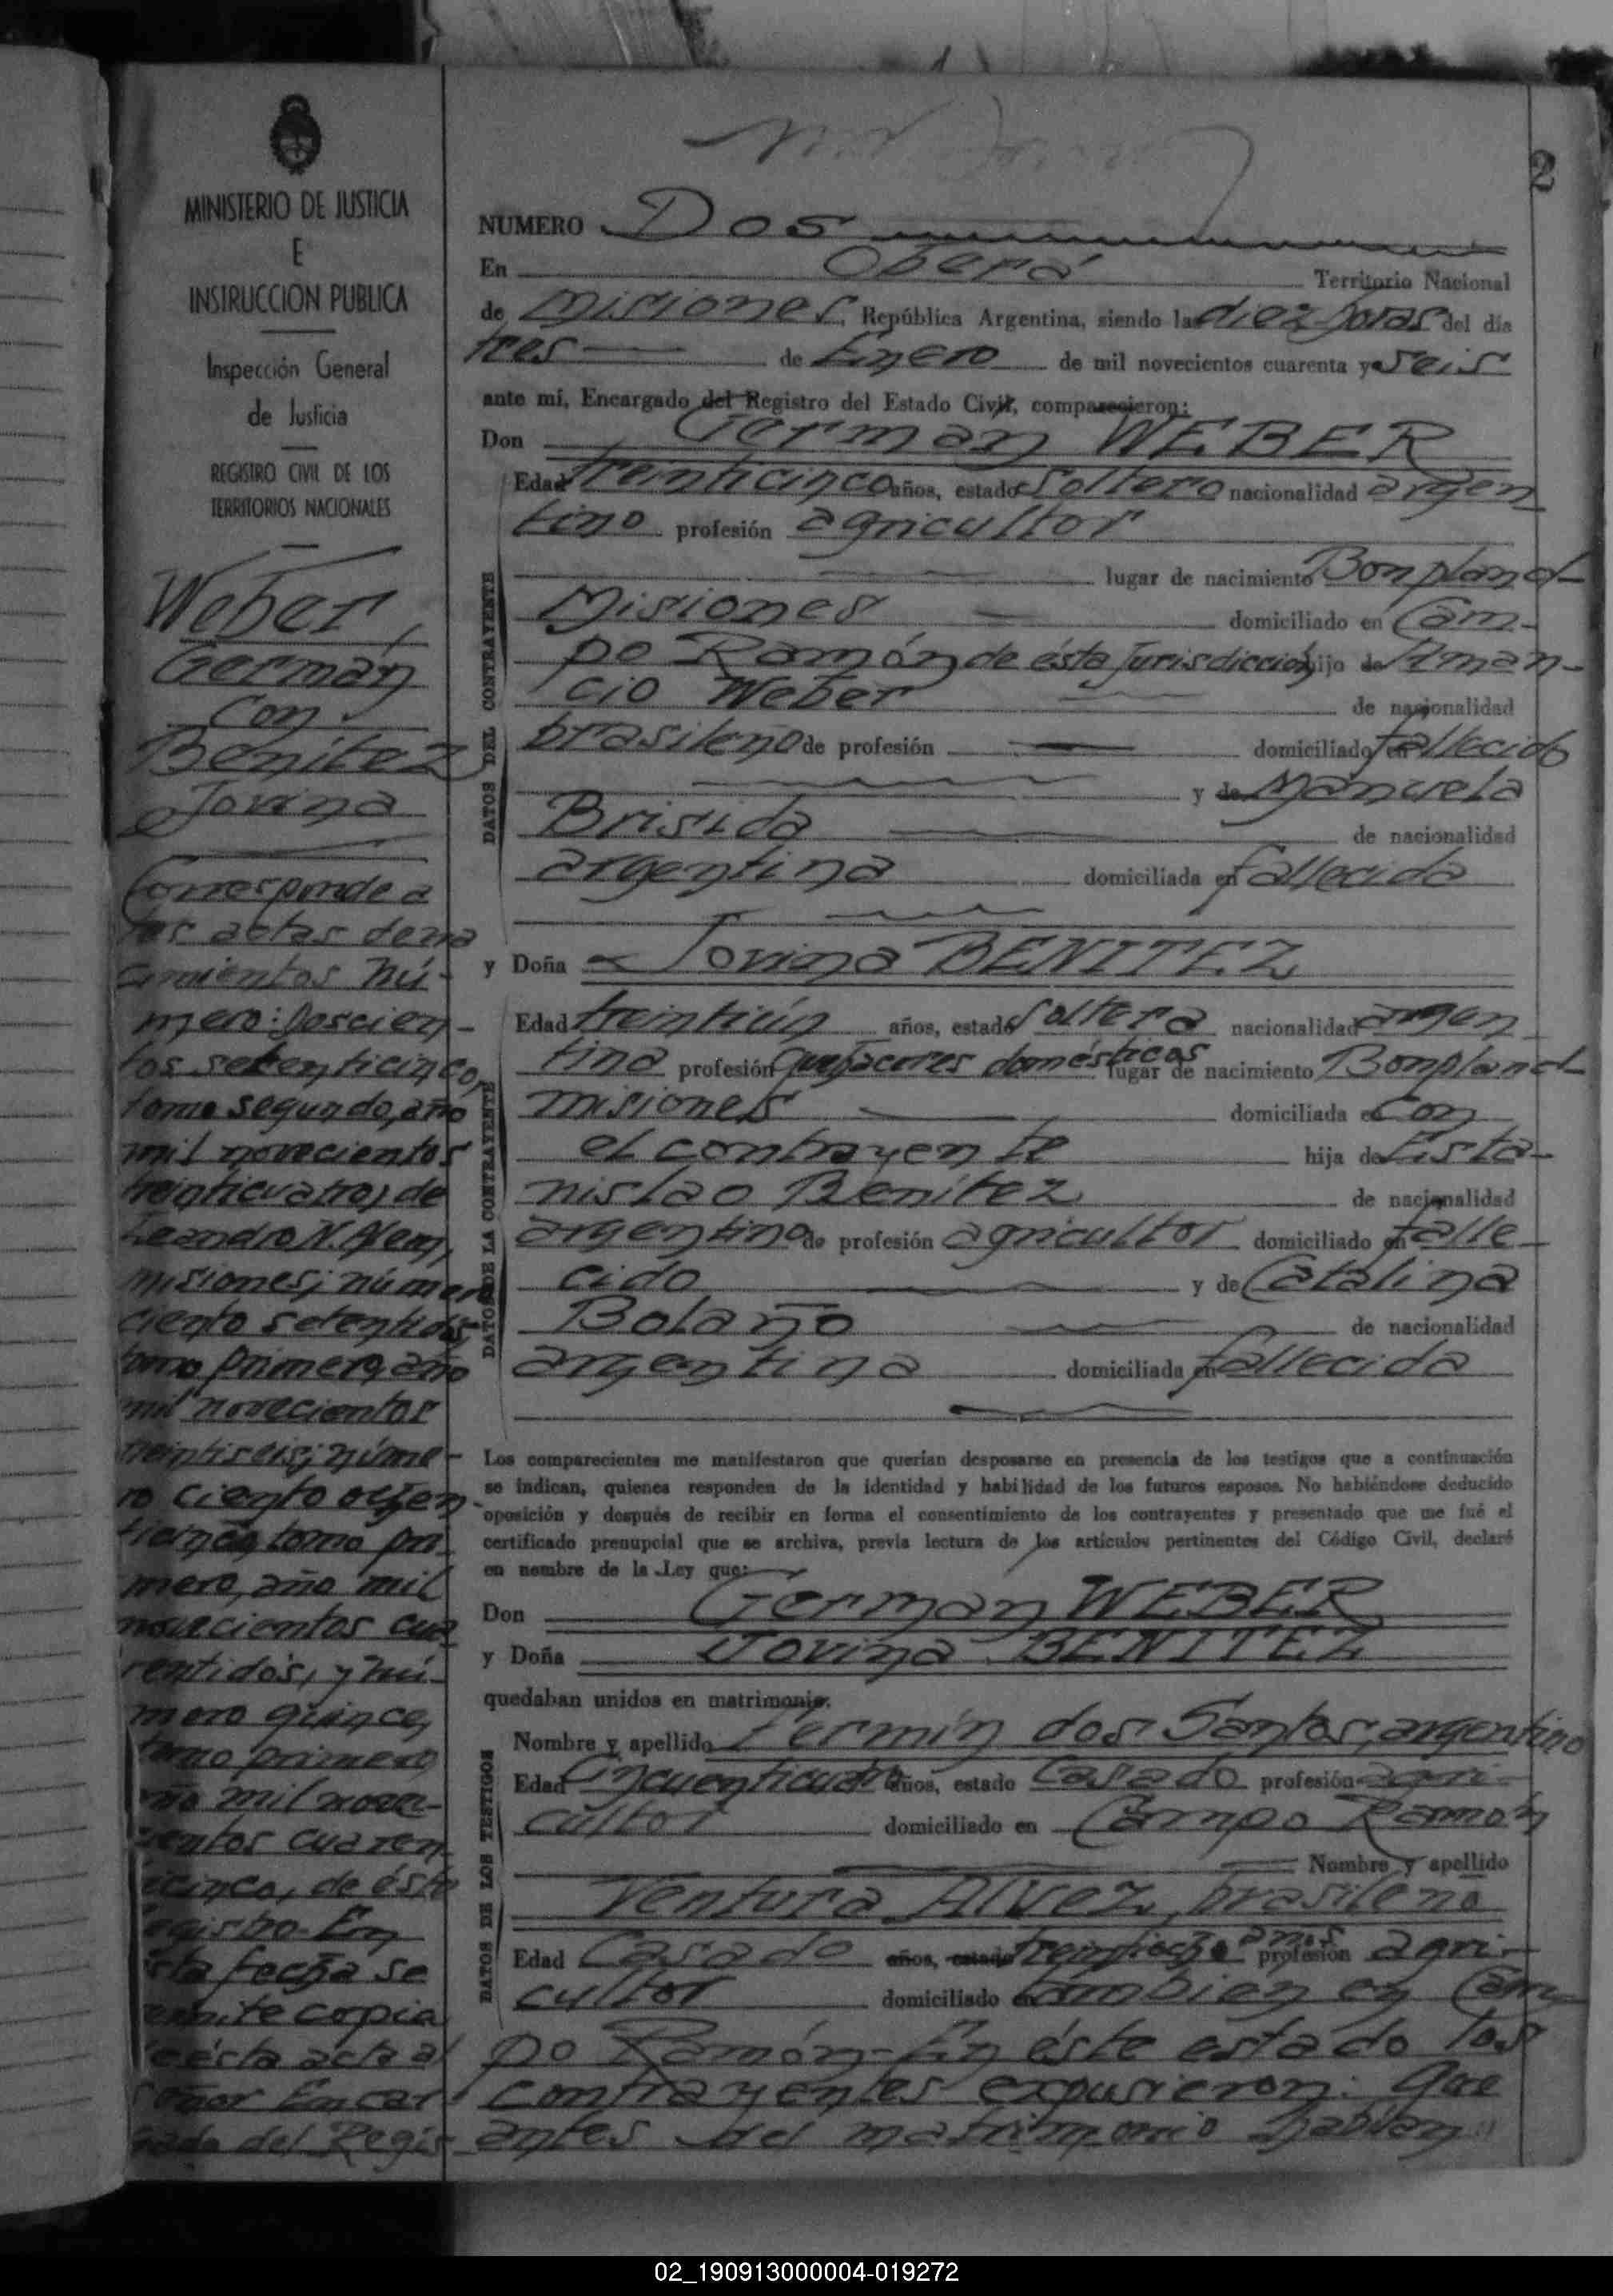 2
MINISTERIO DE JUSTICIA
E
INSTRUCCION PUBLICA
Inspección General
de Justicia
REGISTRO CIVIL DE LOS
TERRITORIOS NACIONALES
Weber,
Germán
con
Benítez
Jovina
Corresponde a
las actas de na
cimientos nú-
mero: doscien-
tos setenticinco,
tomo segundo, año
mil novecientos
treinticuatro, de
Leandro N. Alem,
Misiones; número
ciento setentidós,
tomo primero, año
mil novecientos
treintiseis; núme-
ro ciento ochen-
tomo pri-
mero, año mil
novecientos cua
rentidós, y nú-
mero quince,
tomo primero
año mil nove-
cientos cuaren
ticinco, de éste
registro. En
esta fecha se
remite copia
de ésta acta al
señor Encar
gado del Regis
NUMERO Dos
En Oberá Territorio Nacional
de Misiones, República Argentina, siendo las diez horas del día
tres de Enero de mil novecientos cuarenta y seis
ante mí, Encargado del Registro del Estado Civil, comparecieron:
Don German WEBER
Edad treinticinco años, estado soltero nacionalidad argen
tino profesión agricultor
lugar de nacimiento Bonpland-
Misiones domiciliado en Cam-
po Ramón de ésta Jurisdicción hijo de Aman-
cio Weber de nacionalidad
brasileño de profesión domiciliado en fallecido
y de Manuela
Brisida de nacionalidad
argentina domiciliada en fallecida
y Doña Jovina BENITEZ
Edad treintiún años, estado soltera nacionalidad argen
tina profesión quehaceres domésticos lugar de nacimiento Bonpland-
misiones domiciliada en con
el contrayente hija de Esta-
nislao Benítez de nacionalidad
argentino de profesión agricultor domiciliado en falle-
cido y de Catalina
Bolaño de nacionalidad
argentina domiciliada en fallecida
DATOS DEL CONTRAYENTE
DATOS DE LA CONTRAYENTE
Los comparecientes me manifestaron que querían desposarse en presencia de los testigos que a continuación
se indican, quienes responden de la identidad y habilidad de los futuros esposos. No habiéndose deducido
oposición y después de recibir en forma el consentimiento de los contrayentes y presentado que me fué el
certificado prenupcial que se archiva, previa lectura de los artículos pertinentes del Código Civil, declaré
en nombre de la Ley que:
Don German WEBER
y Doña Jovina BENITEZ
quedaban unidos en matrimonio.
DATOS DE LOS TESTIGOS
Nombre y apellido Fermín dos Santos, argentino
Edad Cincuenticuatro años, estado Casado profesión agri-
cultor domiciliado en Campo Ramón
Nombre y apellido
Ventura Alvez, brasileño
Edad Casado años, estado treintiocho años profesión agri-
cultor domiciliado en tambien en Cam
po Ramón- En éste estado los
contrayentes expusieron: Que
antes del matrimonio habían
02_190913000004-019272